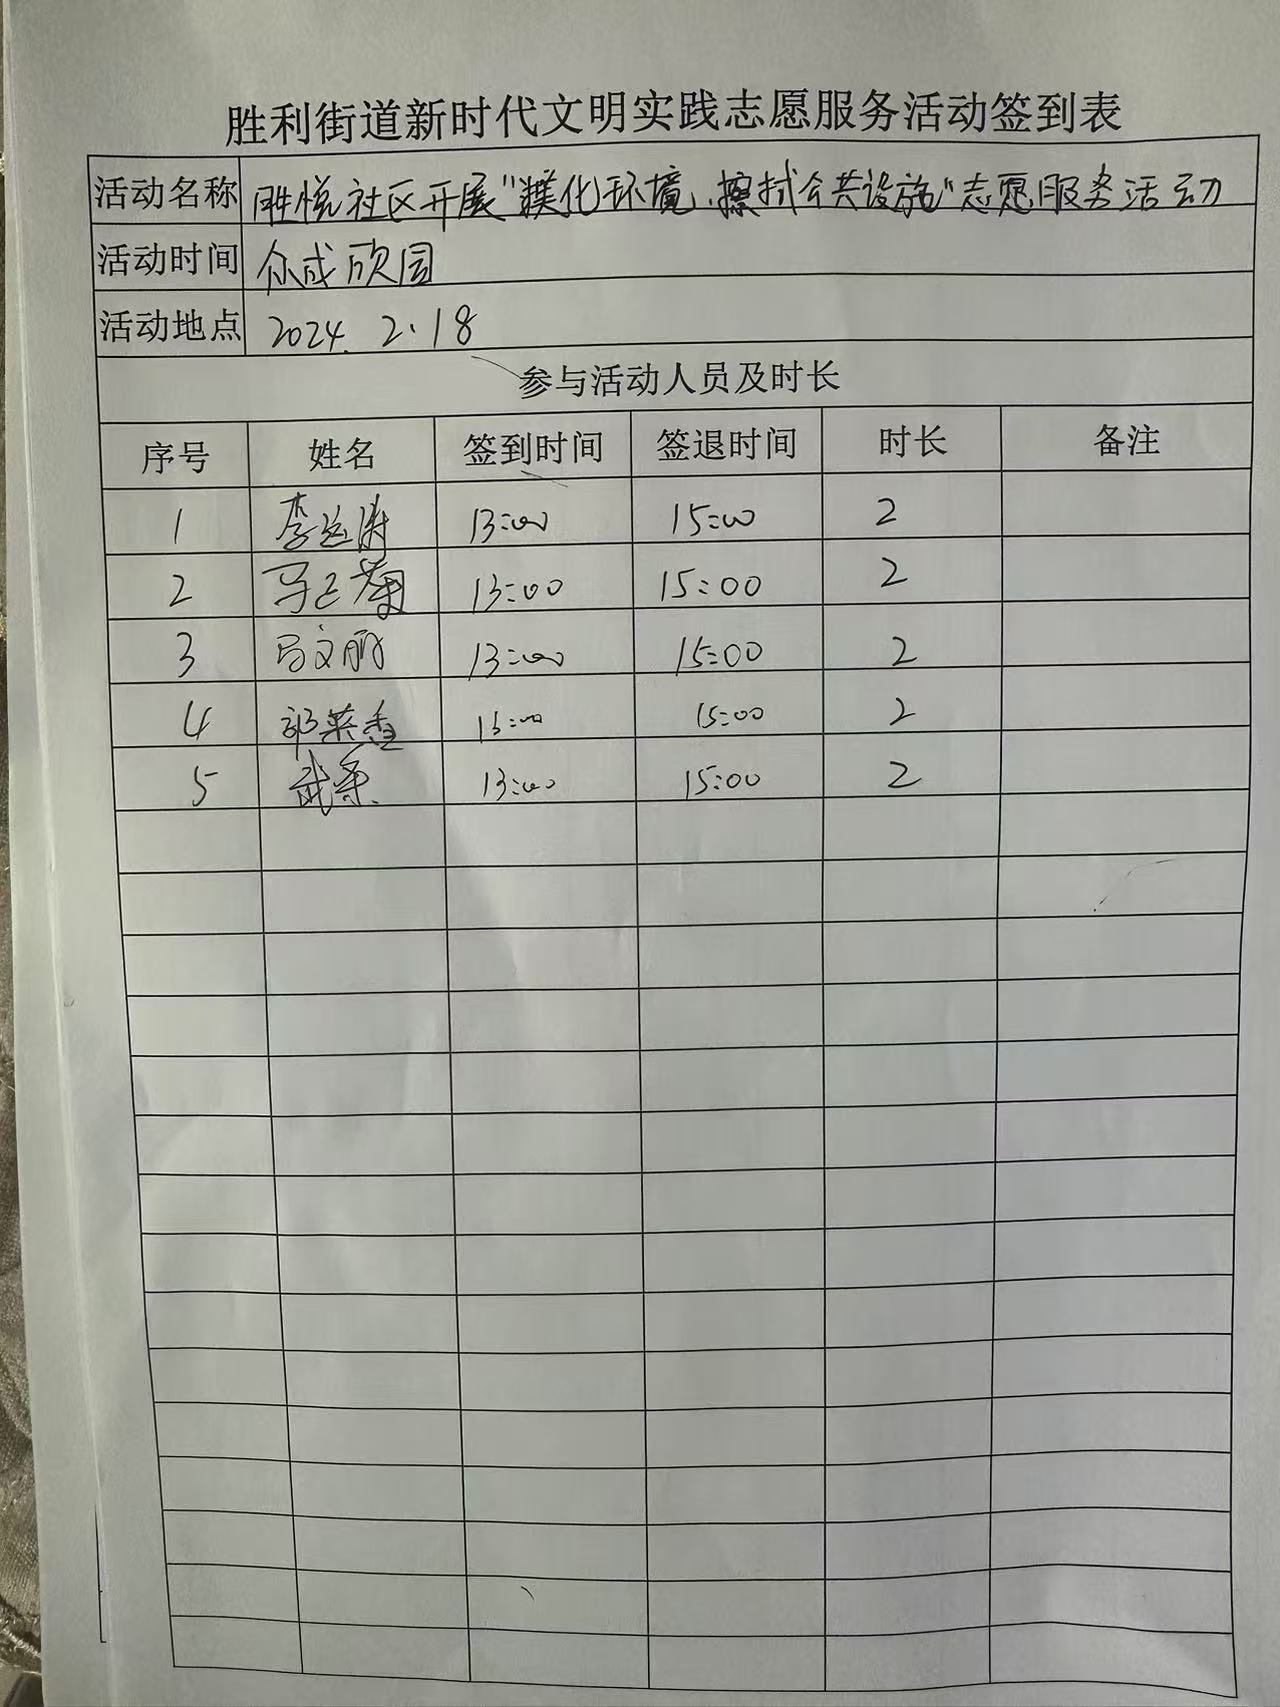 胜利街道新时代文明实践志愿服务活动签到表
活动名称 胜悦社区开展"美化环境、擦拭公共设施"志愿服务活动
活动时间 众成欣园
活动地点 2024.2.18
参与活动人员及时长
序号 姓名 签到时间 签退时间 时长 备注
1 李运涛 13:00 15:00 2
2 马已菊 13:00 15:00 2
3 马文丽 13:00 15:00 2
4 郭英香 13:00 15:00 2
5 武柔 13:00 15:00 2